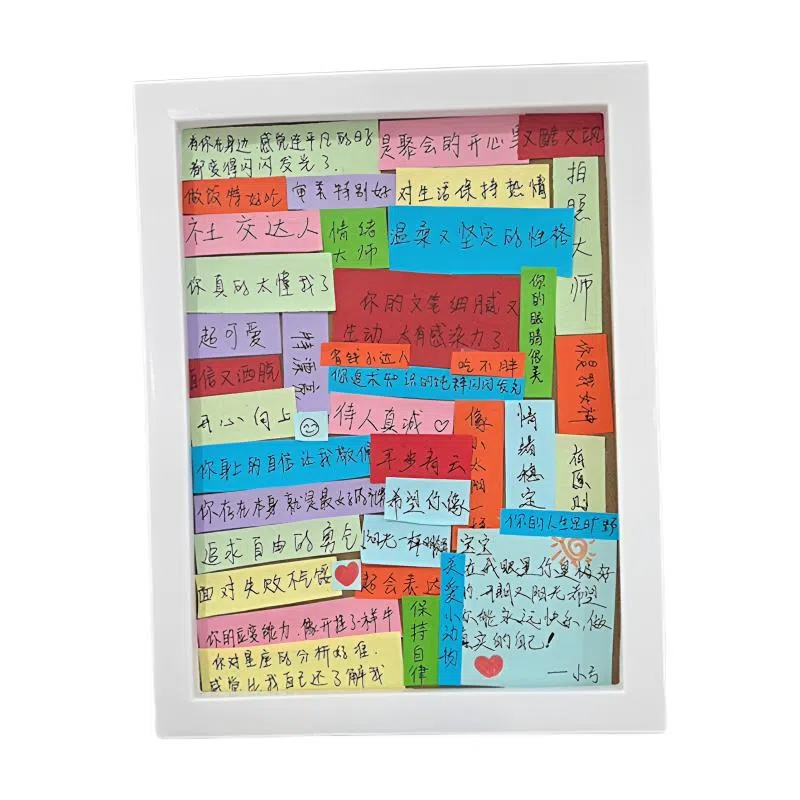 有你在身边,感觉连平凡的日子
都变得闪闪发光了.
是聚会的开心果
又酷又飒
做饭特好吃
审美特别好
对生活保持热情
拍照大师
社交达人
情绪
大师
温柔又坚定的性格
你真的太懂我了
你的文笔细腻又
生动,太有感染力了
你的眼睛很美
超可爱
特漂亮
有钱小达人
吃不胖
自信又洒脱
你追求知识的
闪闪发光
你是我女神
开心向上
待人真诚♡
像小太阳一样
情绪稳定
有原则
你身上的自信让我敬佩
平步青云
你存在本身就是最好的礼物
希望你像
你的人生是旷野
追求自由的勇气
阳光一样
宝宝
面对失败不气馁
超会表达
爱小动物
在我眼里你是
又阳光希望
你能永远快乐,做
真实的自己!
——小弓
你的应变能力,像开挂了一样牛
保持自律
你对星座的分析好准,
感觉比我自己还了解我